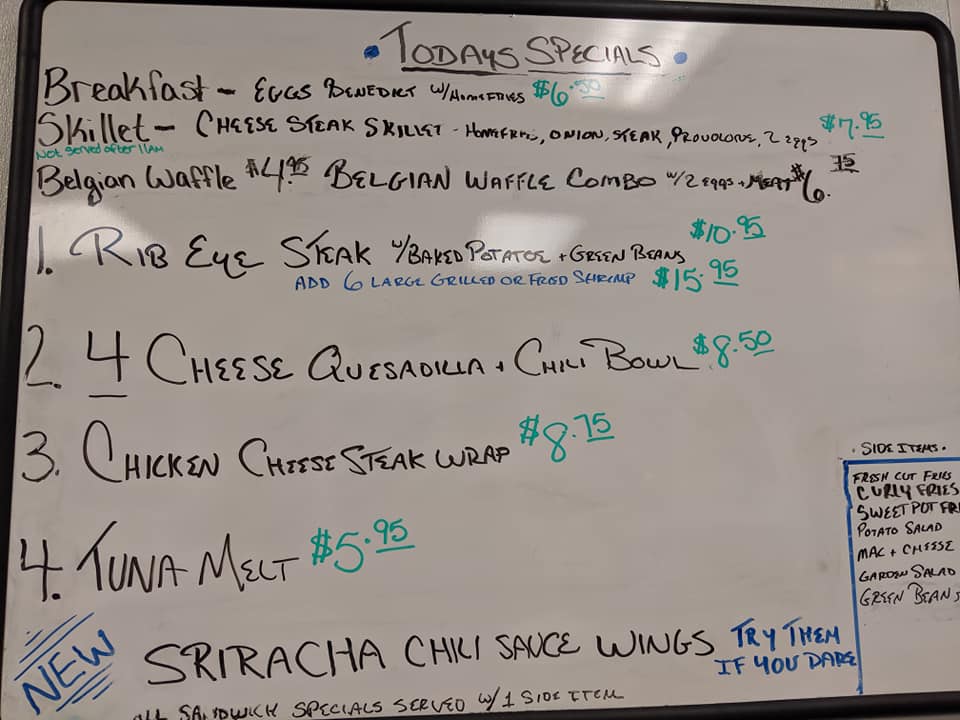 • TODAYS SPECIALS •
Breakfast - EGGS BENEDICT W/HOMEFRIES $6.50
Skillet - CHEESE STEAK SKILLET - HOMEFRIES, ONION, STEAK, PROVOLONE, 2 eggs $7.95
Not served after 11AM
Belgian Waffle $4.95 BELGIAN WAFFLE COMBO w/2 eggs + MEAT $6.75
1. RIB EYE STEAK w/BAKED POTATOE + GREEN BEANS $10.95
ADD 6 LARGE GRILLED OR FRIED SHRIMP $15.95
2. 4 CHEESE QUESADILLA + CHILI BOWL $8.50
3. CHICKEN CHEESE STEAK WRAP $8.75
4. TUNA MELT $5.95
• SIDE ITEMS •
FRESH CUT FRIES
CURLY FRIES
SWEET POT FRI
POTATO SALAD
MAC + CHEESE
GARDEN SALAD
GREEN BEANS
NEW
SRIRACHA CHILI SAUCE WINGS TRY THEM
IF YOU DARE
ALL SANDWICH SPECIALS SERVED W/1 SIDE ITEM